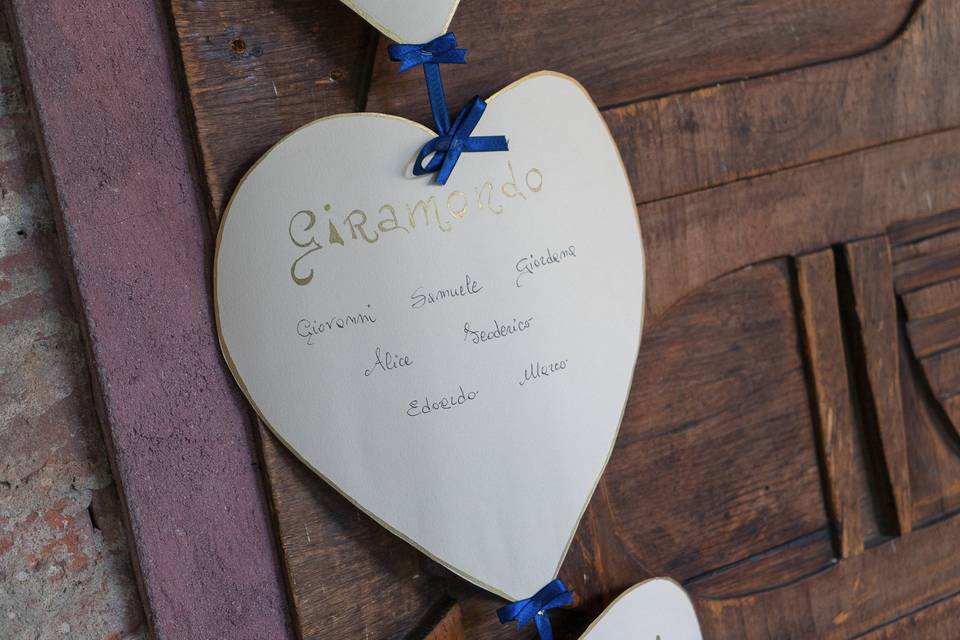 Giramondo
Giovanni Samuele Giordana
Alice Teodorico
Edoardo Marco